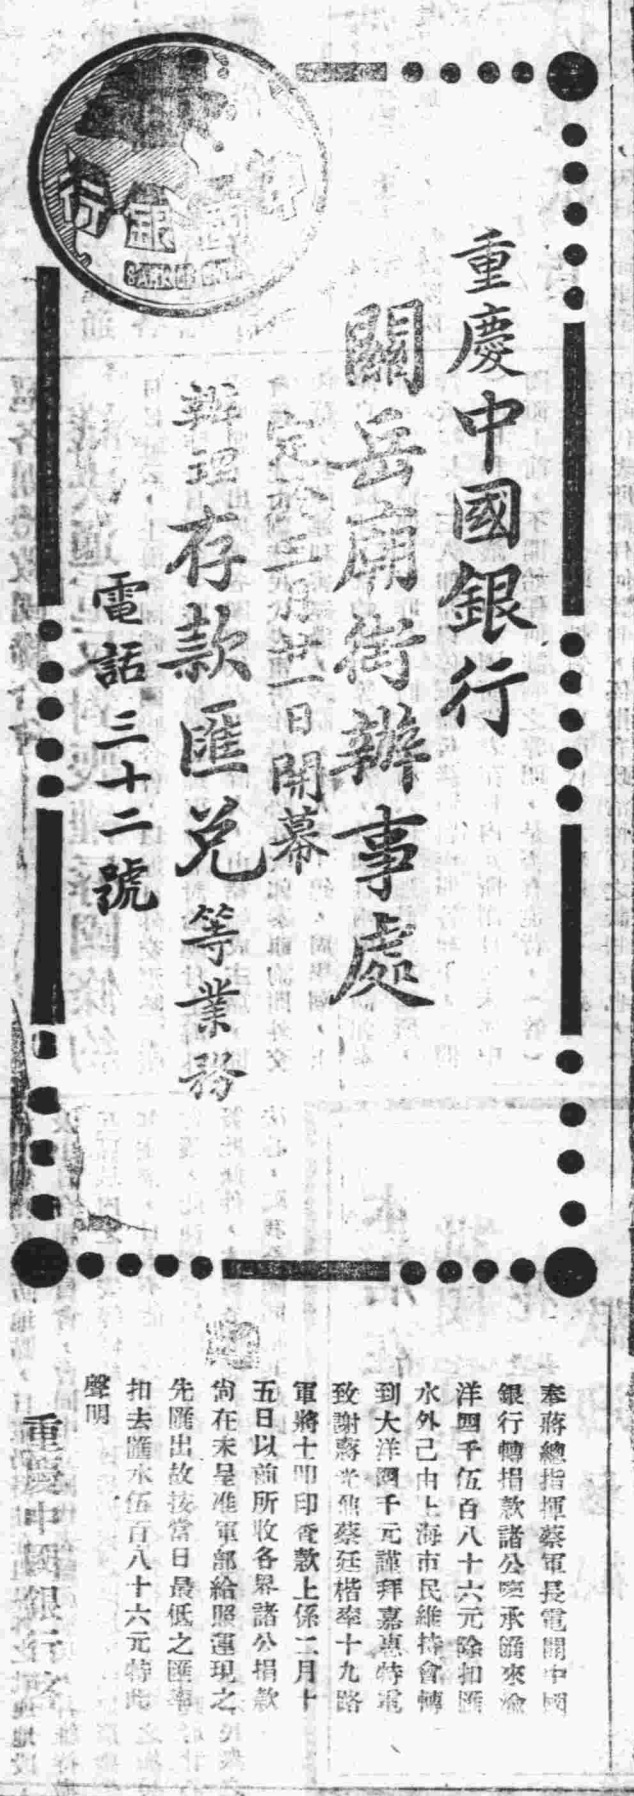 中國銀行
BANK OF CHINA
重慶中國銀行
關岳廟街辦事處
定於三月廿一日開幕
辦理存款匯兌等業務
電話三十二號
奉蔣總指揮蔡軍長電開中國
銀行轉捐款諸公鑒承匯來渝
洋四千伍百八十六元除扣匯
水外已由上海市民維持會轉
到大洋四千元謹拜嘉惠特電
致謝蔣光鼐蔡廷楷率十九路
軍將士叩印查款上係二月十
五日以前所收各界諸公捐款
尙在未呈准軍部給照運現之
先匯出故按當日最低之匯率
扣去匯水伍百八十六元特此
聲明
重慶中國銀行啓